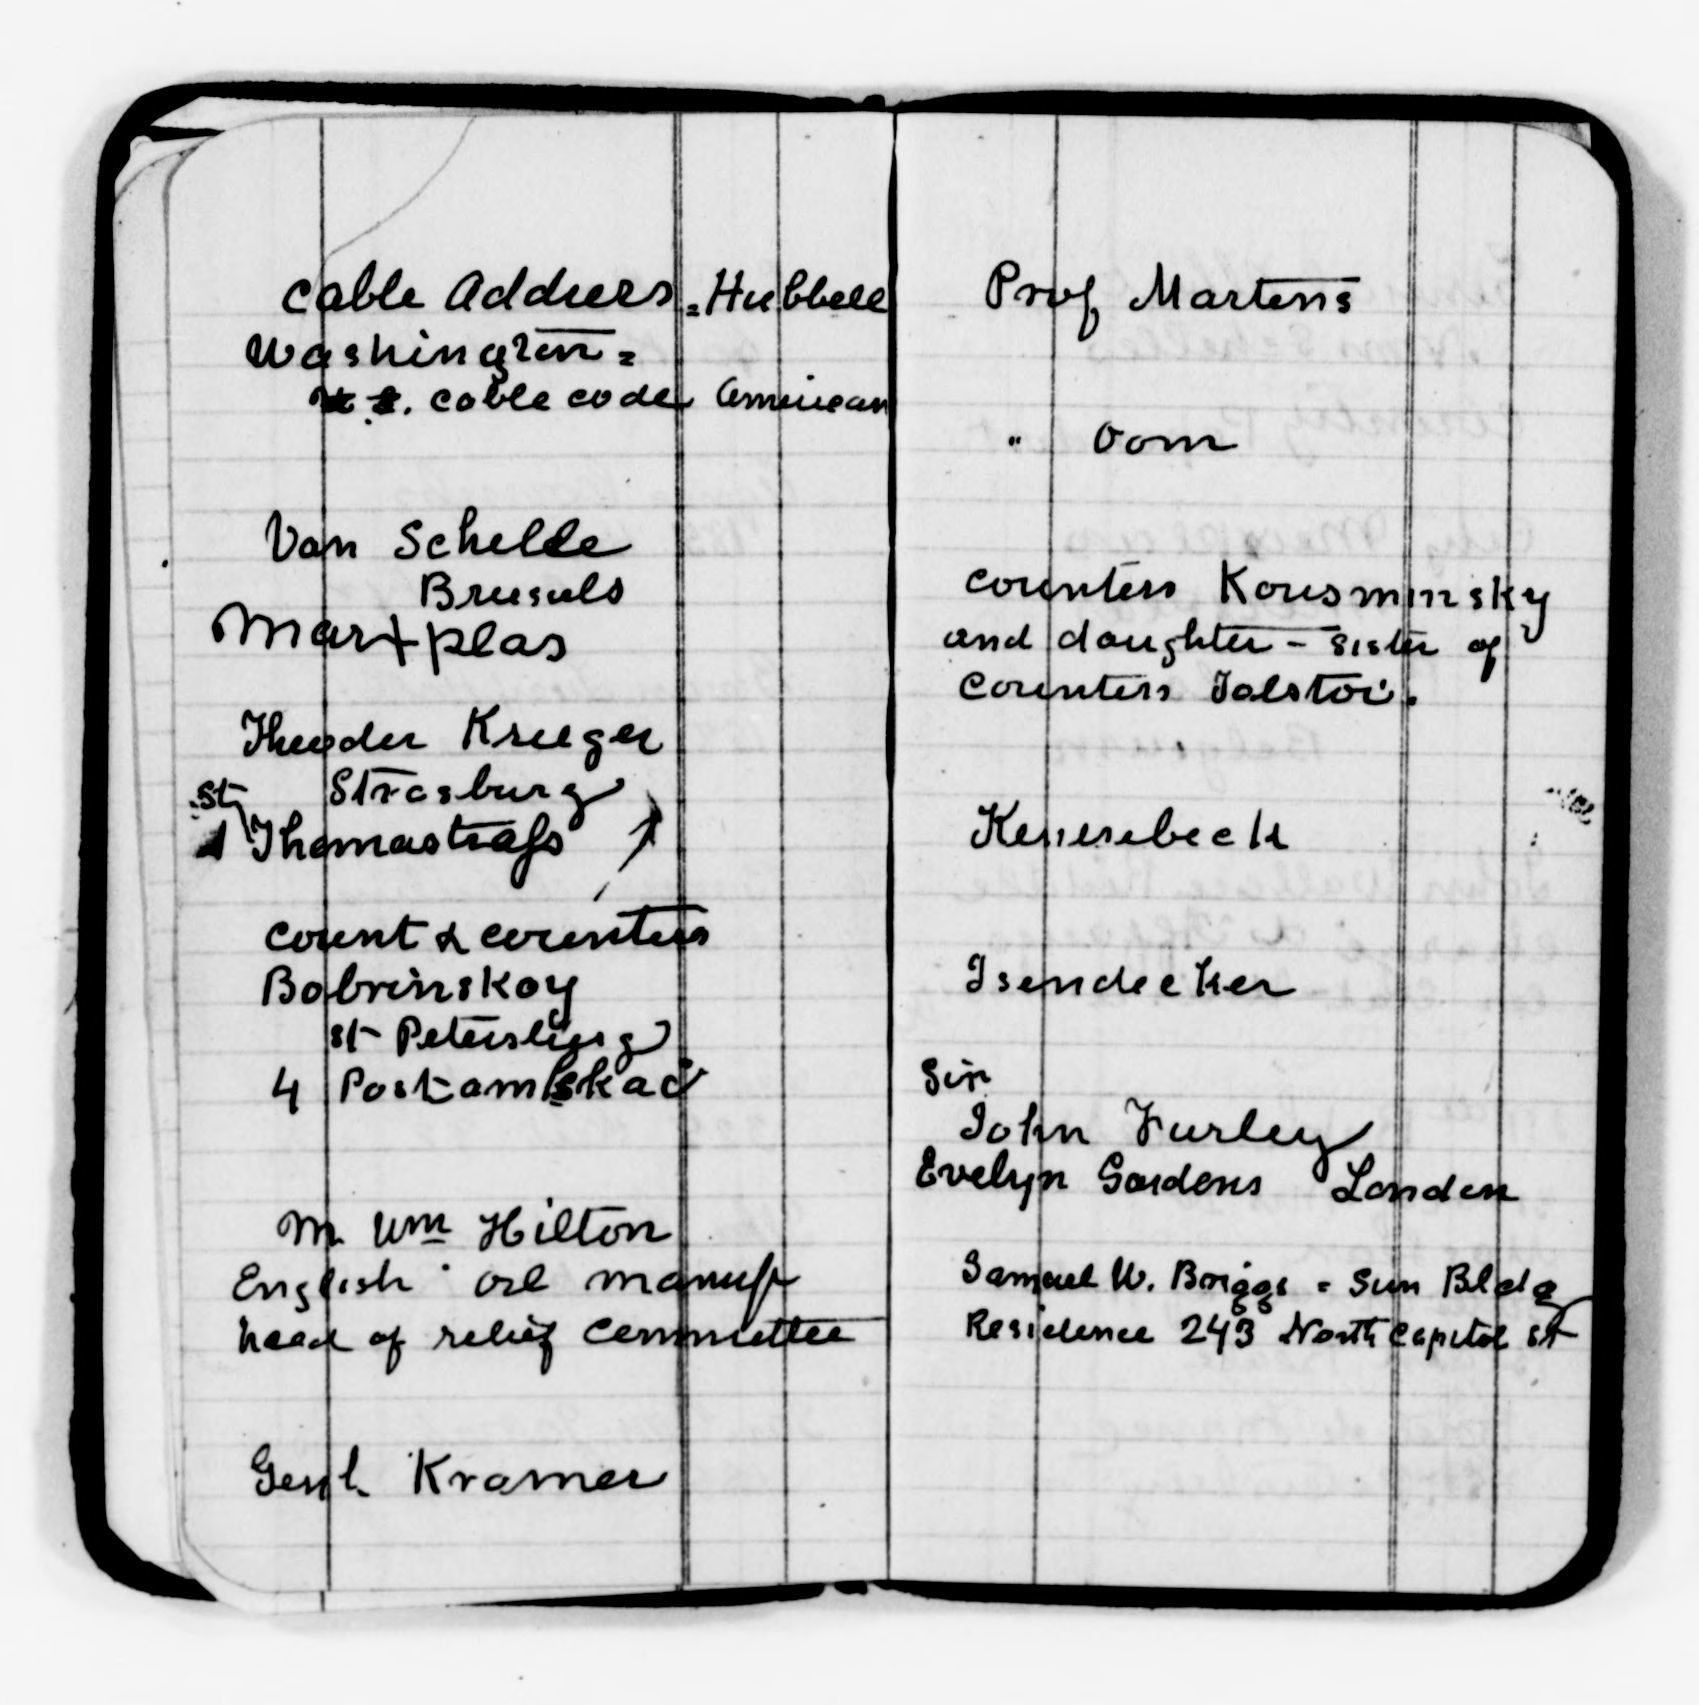 Cable Address = Hubbell
Washington =
cable code American
Van Schelle
Brussels
Marxplas
Theoder Krueger
Strasburg
st
Thomastrafs
Count & Countess
Bobrinskoy
St Petersburg
4 Postamtskaoi
M. Wm Hilton
English oil manuf
head of relief committee
Genl. Kramer
Prof Martens
" Oom
Countess Kousminsky
and daughter - sister of
Countess Tolstoi.
Isendecker
Sir
John Furley
Evelyn Gardens London
Samuel W. Briggs = Sun Bldg
Residence 243 North Capitol st